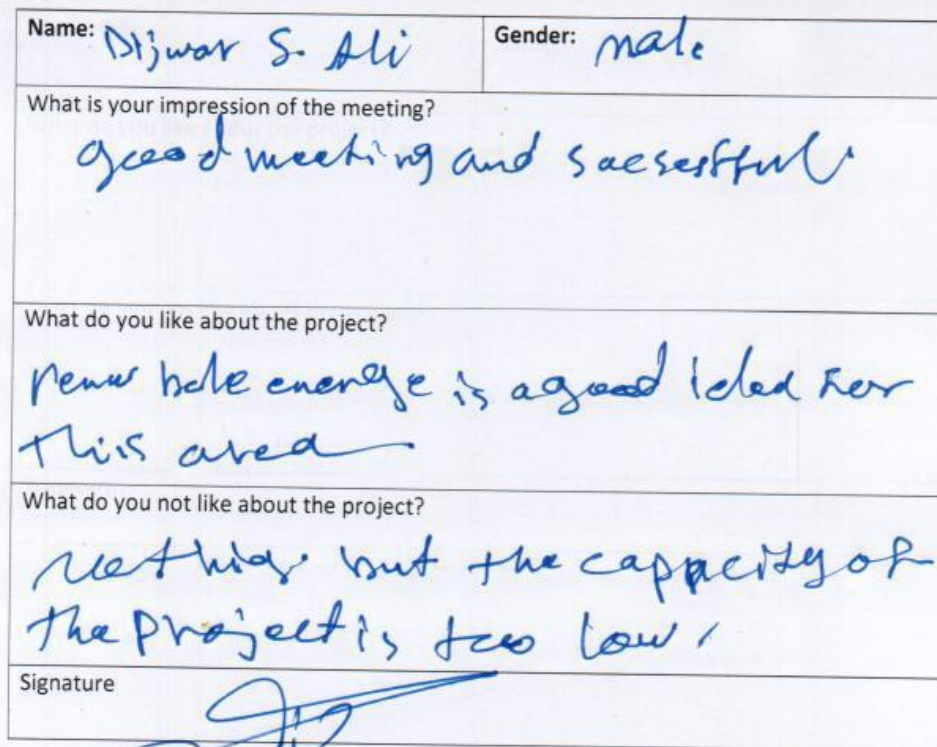 Name: Dijwar S. Ali Gender: male
What is your impression of the meeting?
good meeting and sacsessful.
What do you like about the project?
renew bale energe is a good idea for
this area
What do you not like about the project?
nothig but the cappacity of
the project is too low.
Signature